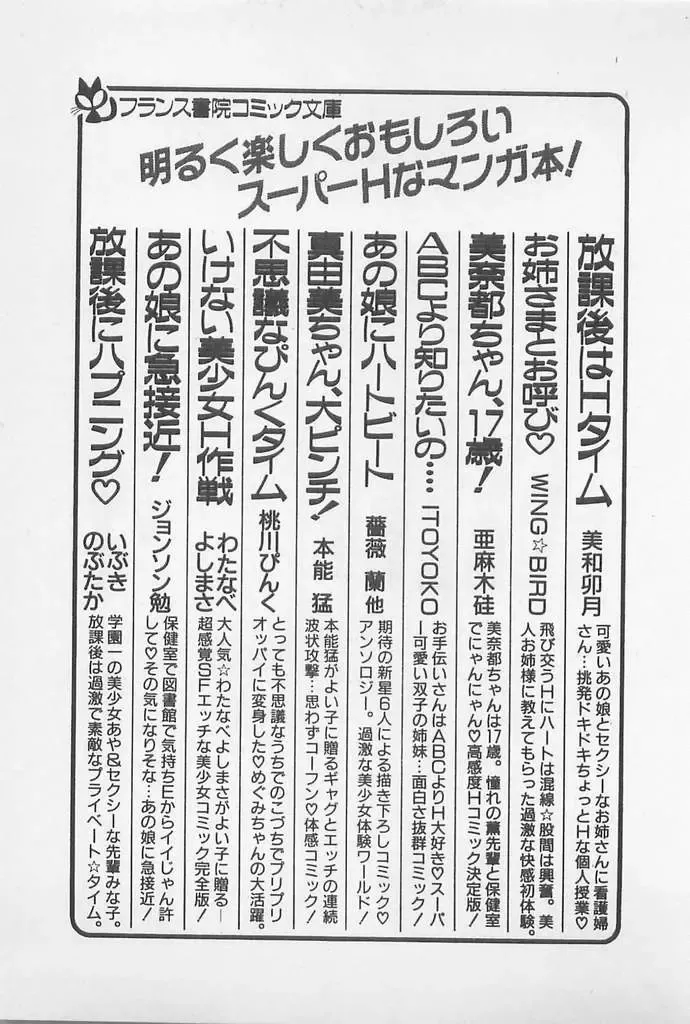 フランス書院コミック文庫
明るく楽しくおもしろい
スーパーHなマンガ本!
放課後はHタイム 美和卯月
可愛いあの娘とセクシーなお姉さんに看護婦
さん…挑発ドキドキちょっとHな個人授業♡
お姉さまとお呼び♡ WING☆BIRD
飛び交うHにハートは混線☆股間は興奮。美
人お姉様に教えてもらった過激な快感初体験。
美奈都ちゃん、17歳! 亜麻木硅
美奈都ちゃんは17歳。憧れの薫先輩と保健室
でにゃんにゃん♡高感度Hコミック決定版!
ABCより知りたいの…… ITOYOKO
お手伝いさんはABCよりH大好き♡スーパ
ー可愛い双子の姉妹…面白さ抜群コミック!
あの娘にハートビート 薔薇 蘭他
期待の新星6人による描き下ろしコミック♡
アンソロジー。過激な美少女体験ワールド!
真由美ちゃん、大ピンチ! 本能 猛
本能猛がよい子に贈るギャグとエッチの連続
波状攻撃…思わずコーフン♡体感コミック!
不思議なぴんくタイム 桃川ぴんく
とっても不思議なうちでのこづちでプリプリ
オッパイに変身した♡めぐみちゃんの大活躍。
いけない美少女H作戦 わたなべ
よしまさ
大人気☆わたなべよしまさがよい子に贈る―
超感覚SFエッチな美少女コミック完全版!
あの娘に急接近! ジョンソン勉
保健室で図書館で気持ちEからイイじゃん許
して♡その気になりそな…あの娘に急接近!
放課後にハプニング♡ いぶき
のぶたか
学園一の美少女あや&セクシーな先輩みな子。
放課後は過激で素敵なプライベート☆タイム。